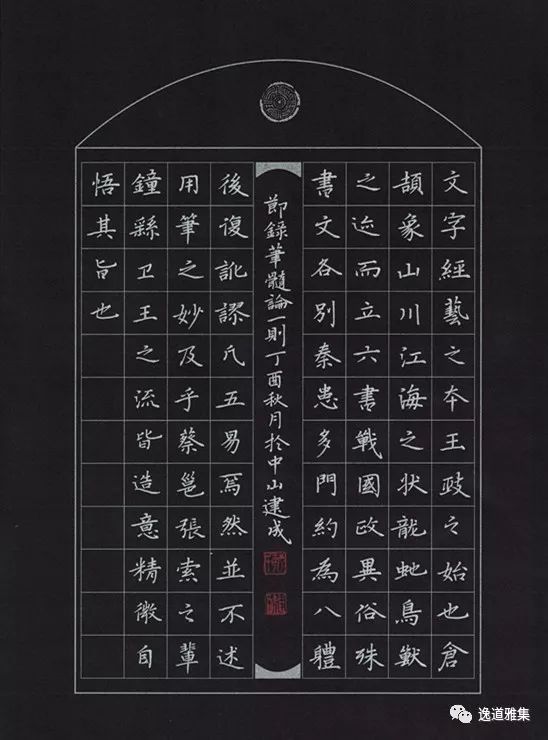 文字經藝之本王政之始也倉
頡象山川江海之狀龍虵鳥獸
之迹而立六書戰國政異俗殊
書文各別秦患多門約為八體
節錄筆髓論一則丁酉秋月於中山建成
後復訛謬凡五易焉然並不述
用筆之妙及乎蔡邕張索之輩
鐘繇卫王之流皆造意精微自
悟其旨也
逸道雅集